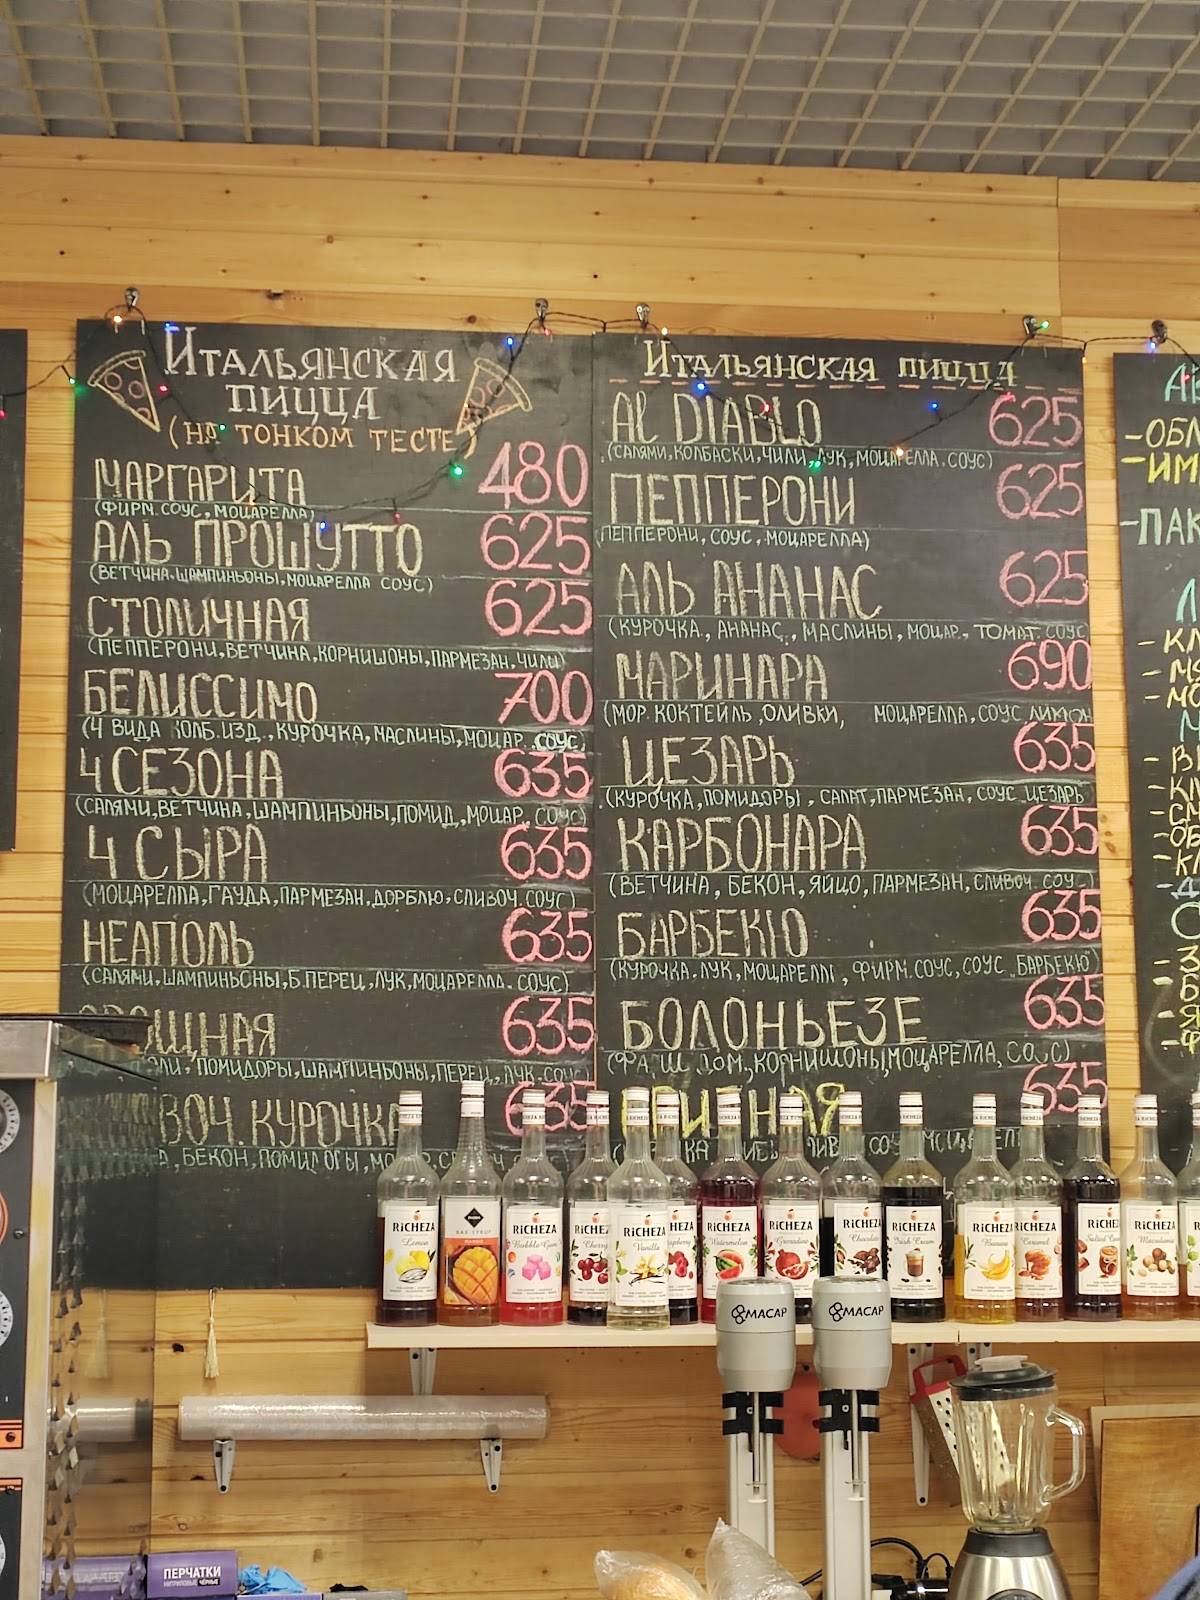 Итальянская
пицца
(на тонком тесте)
Маргарита 480
(фирм.соус, моцарелла)
Аль Прошутто 625
(ветчина.шампиньоны,моцарелла соус)
Столичная 625
(пепперони,ветчина,корнишоны,пармезан,чили)
Белиссимо 700
(4 вида колб.изд.,курочка,маслины,моцар. соус)
4 сезона 635
(салями,ветчина,шампиньоны,помид.,моцар. соус)
4 сыра 635
(моцарелла,гауда,пармезан,дорблю.сливоч.соус)
Неаполь 635
(салями.шампиньоны,б.перец,лук,моцарелла.соус)
635
помидоры,шампиньоны,перец,лук.соус)
курочка 635
бекон,помидоры,
Итальянская пицца
Al Diablo 625
(салями,колбаски,чили,лук,моцарелла.соус)
Пепперони 625
пепперони, соус, моцарелла)
Аль Ананас 625
(курочка, ананас, маслины, моцар., томат. соус
Маринара 690
(мор.коктейль,оливки, моцарелла,соус лимон
Цезарь 635
(курочка,помидоры, салат,пармезан, соус цезарь
Карбонара 635
(ветчина, бекон, яйцо, пармезан,сливоч.соус)
Барбекю 635
(курочка.лук, , фирм.соус,соус барбекю)
Болоньезе 635
корнишоны,моцарелла, соус)
635
-ОБЛ
-ИМ
-ПАК
RiCHEZA
Lemon
MANGO
RiCHEZA
Bubble Gum
RiCHEZA
Cherry
RiCHEZA
Vanilla
RiCHEZA
Watermelon
RiCHEZA
Grenadine
RiCHEZA
Chocolate
RiCHEZA
Irish Cream
RiCHEZA
Banana
RiCHEZA
Caramel
Salted Caramel
RiCHEZA
Macadamia
MACAP
MACAP
ПЕРЧАТКИ
НИТРИЛОВЫЕ ЧЁРНЫЕ